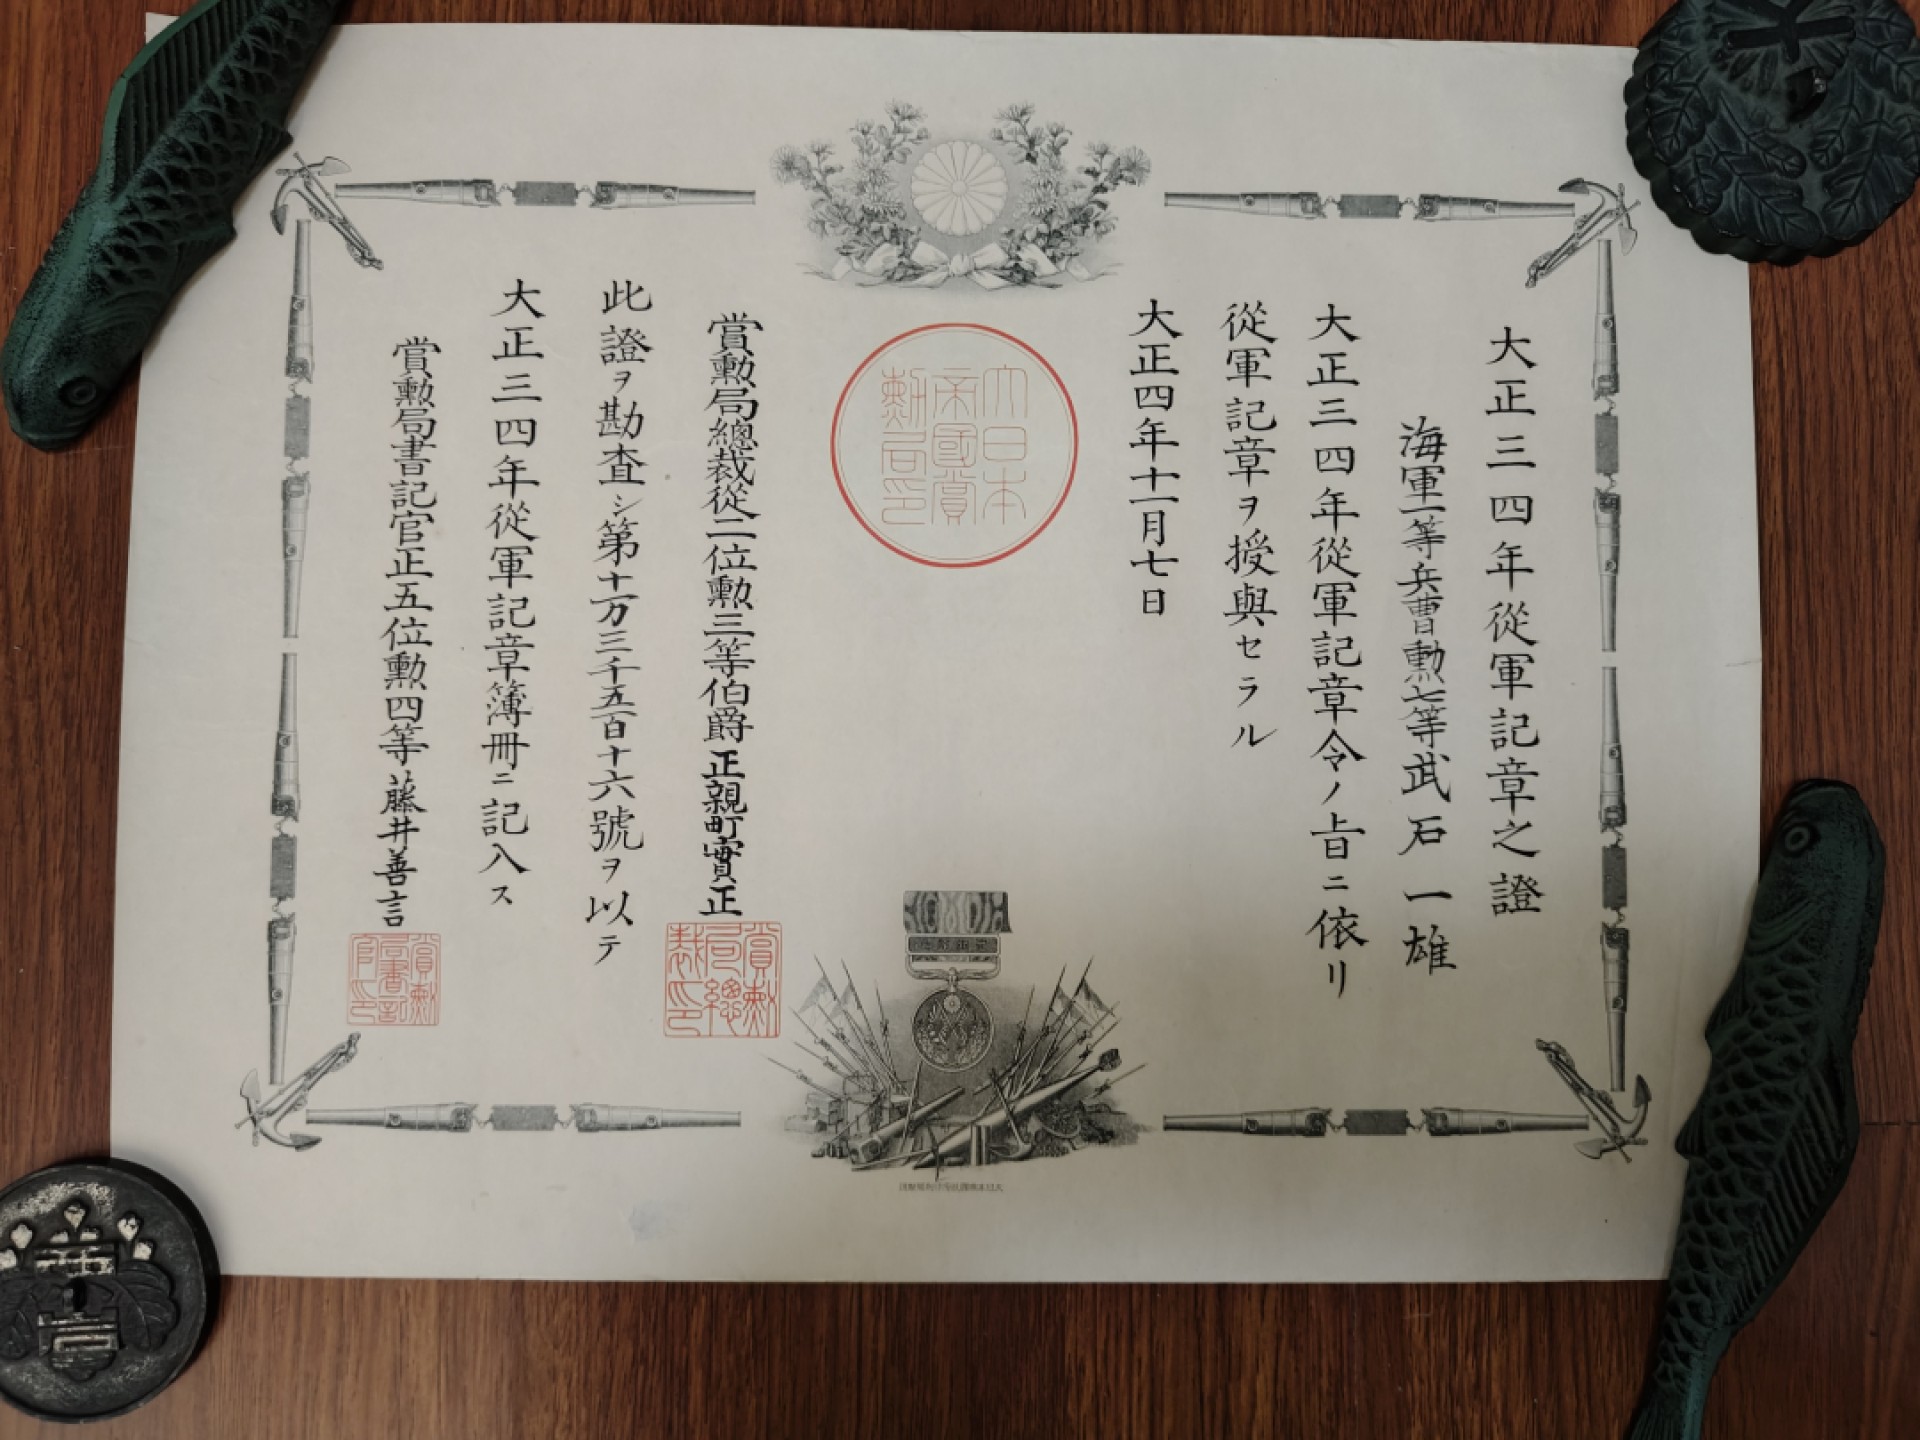 大正三四年從軍記章之證
海軍一等兵曹勲七等武石一雄
大正三四年從軍記章令ノ旨ニ依リ
從軍記章ヲ授與セラル
大正四年十一月七日
大日本
帝國賞
勲局印
賞勲局總裁從二位勲三等伯爵正親町實正
賞勲
局總
裁印
此證ヲ勘査シ第十一万三千五百十六號ヲ以テ
大正三四年從軍記章簿冊ニ記入ス
賞勲局書記官正五位勲四等藤井善言
賞勲
局書記
官印